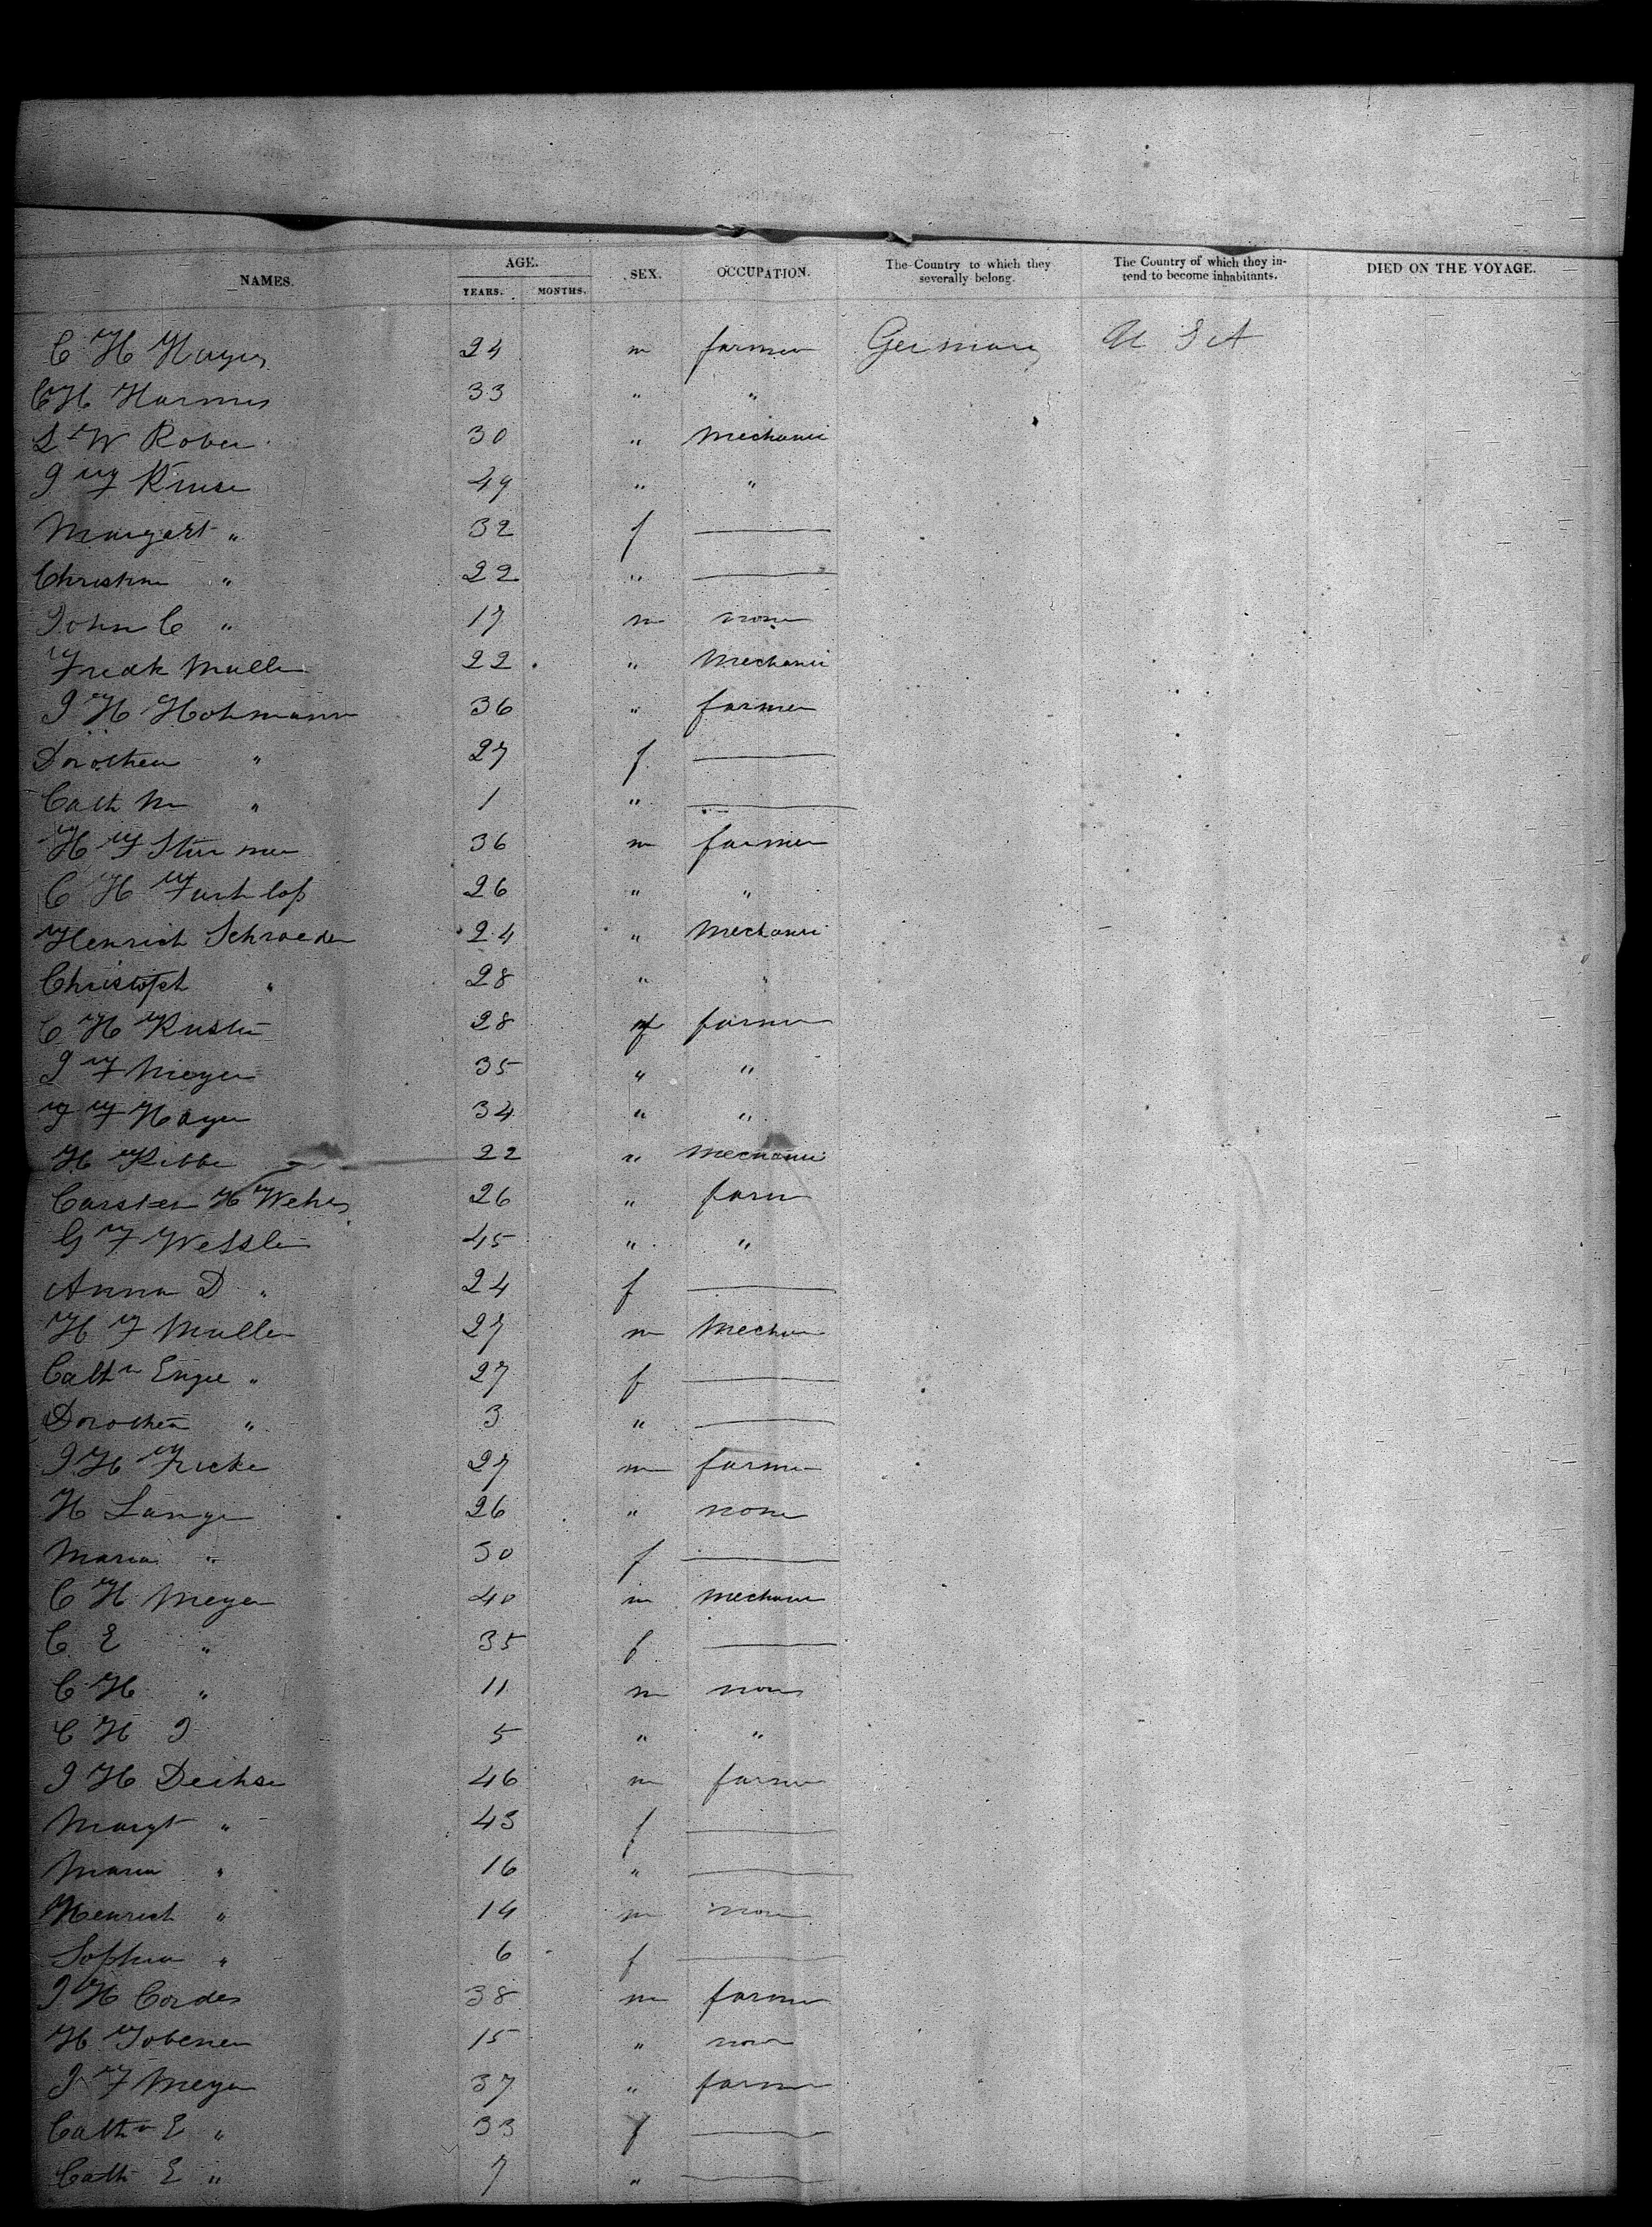 NAMES. AGE. YEARS. MONTHS. SEX. OCCUPATION. The Country to which they severally belong. The Country of which they intend to become inhabitants. DIED ON THE VOYAGE.
C H Hayes 24 m farmer Germany U S A
C H Harmes 33 " "
L W Rober 30 " Mechanic
J F Kruse 49 " "
Margart " 32 f
Christine " 22 "
John C " 17 m none
Fredk Muller 22 " Mechanic
J H Hohmann 36 " farmer
Dorothea " 27 f
Cath M " 1 "
H F 36 m farmer
C H 26 " "
Henrich Schroeder 24 " Mechanic
Christoph " 28 " "
C H 28 farmer
J F Meyer 35 " "
F Hayer 34 " "
H 22 " Mechanic
Carsten H 26 " farm
G F Wessler 45 " "
Anna D " 24 f
H F Muller 27 m Mechan
Cathn Engel " 27 f
Dorothea " 3 "
J H Fricke 27 m farmer
H Lange 26 " none
Maria " 30 f
C H Meyer 40 m Mechanic
C E " 35 f
C H " 11 m none
C H J 5 " "
J H 46 m farmer
Margt " 43 f
Maria " 16 "
Henrich " 14 m none
Sophia " 6 f
J H Cordes 38 m farmer
H 15 " none
J F Meyer 37 " farmer
Cathn E " 33 f
Cath E " 7 "